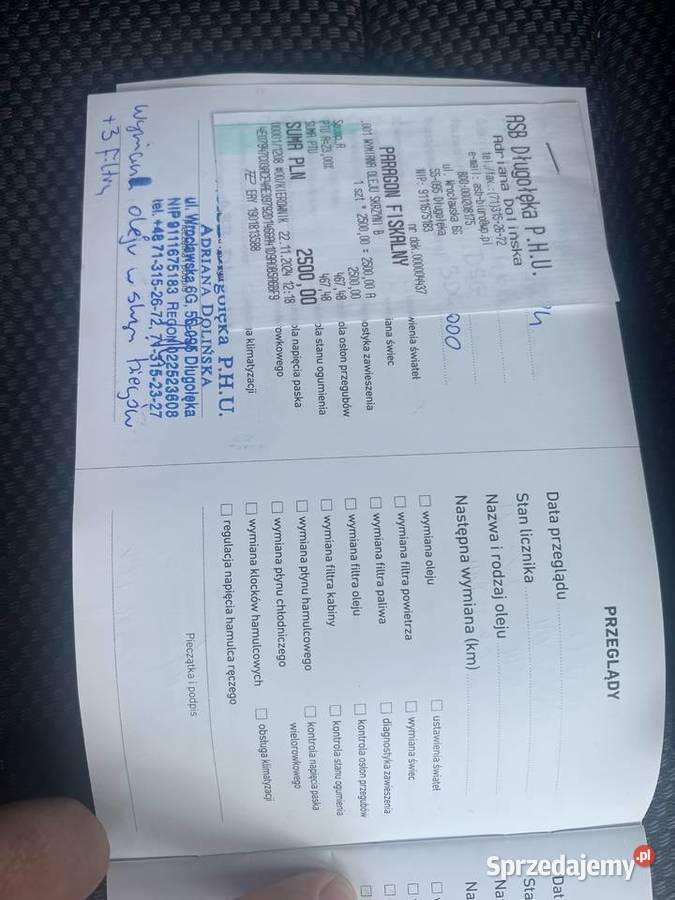 ASB Długołęka P.H.U.
Adriana Dolińska
tel/fax.:(71)315-26-72
e-mail: asb-biuro@wp.pl
BDO:000208175
ul. Wrocławska 6G
55-095 Długołęka
NIP: 9111675183
nr dok.00000H437
PARAGON FISKALNY
WYMIANA OLEJU SKRZYNI B
1 szt * 2500,00 = 2500,00 A
Sprzed. A 2500,00
PTU A=23,00% 467,48
SUMA PTU 467,48
SUMA PLN 2500,00
00001/7208 #001/KIEROWNIK 22.11.2024 12:18
EAY 1901813588
000
wienia świateł
iana świec
ostyka zawieszenia
ola osłon przegubów
ola stanu ogumienia
ola napięcia paska
rowkowego
a klimatyzacji
ADRIANA DOLIŃSKA
ul. Wrocławska 6G, 55-095 Długołęka
NIP 9111675183 REGON 022523608
tel. +48 71-315-26-72, 71-315-23-27
wymiana oleju w skrzyni biegów
+3 filtry
PRZEGLĄDY
Data przeglądu
Stan licznika
Nazwa i rodzaj oleju
Następna wymiana (km)
wymiana oleju
ustawienia świateł
wymiana filtra powietrza
wymiana świec
wymiana filtra paliwa
diagnostyka zawieszenia
wymiana filtra oleju
kontrola osłon przegubów
wymiana filtra kabiny
kontrola stanu ogumienia
wymiana płynu hamulcowego
kontrola napięcia paska
wielorowkowego
wymiana płynu chłodniczego
obsługa klimatyzacji
wymiana klocków hamulcowych
regulacja napięcia hamulca ręcznego
Pieczątka i podpis
Dat
Sta
Na
Na
Sprzedajemy.pl